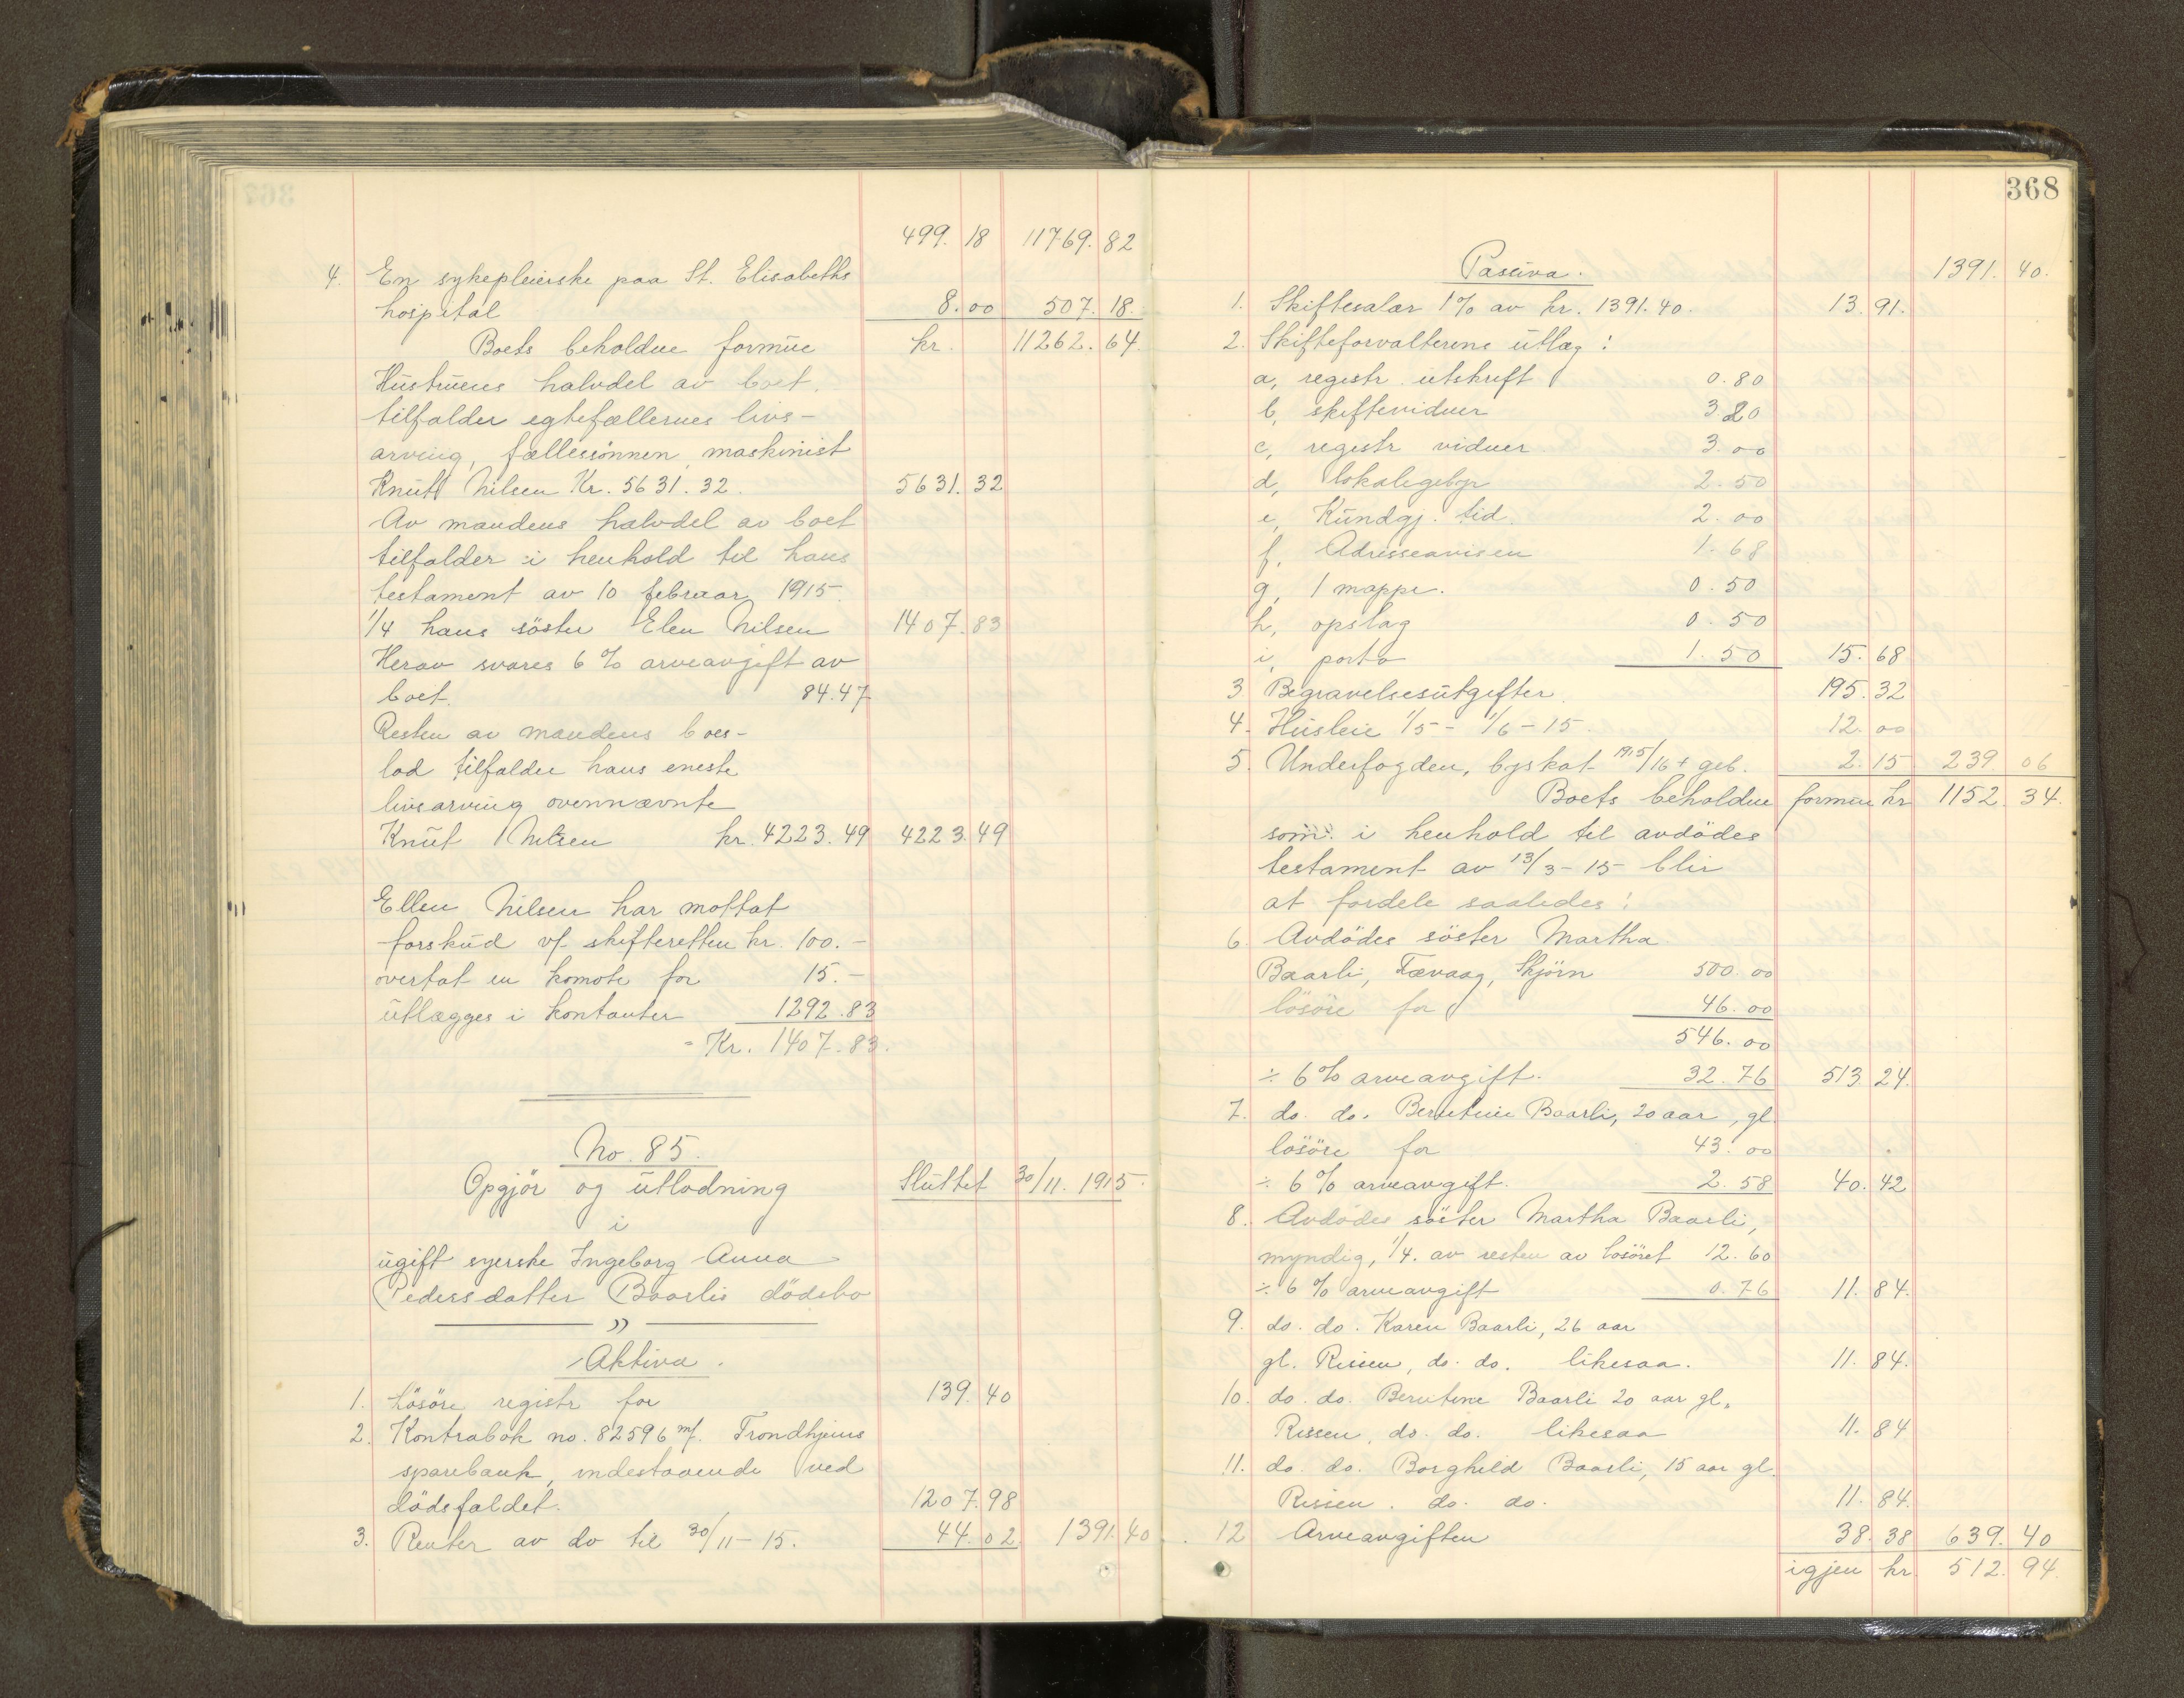 499. 18 11769. 82
4. En sykepleierske paa St. Elisabeths
hospital 8. 00 507. 18.
Boets beholdne formue kr. 11262. 64.
Hustruens halvdel av boet.
tilfalder egtefællernes livs-
arving, fællessönnen, maskinist
Knut Nilsen Kr. 5631. 32. 5631. 32
Av mandens halvdel av boet
tilfalder i henhold til hans
testament av 10 februar 1915.
1/4 hans söster Elen Nilsen 1407. 83
Herav svares 6 % arveavgift av
boet. 84.47
Resten av mandens boes-
lod tilfalder hans eneste
livsarving ovennævnte
Knut Nilsen kr. 4223. 49 4223. 49
Ellen Nilsen har mottat
forskud v/ skifteretten kr. 100. -
overtat en komode for 15. -
utlægges i kontanter 1292. 83
= Kr. 1407. 83.
No. 85.
Opgjör og utlodning Sluttet 30/11. 1915.
i
ugift syerske Ingeborg Anna
Pedersdatter Baarlis dödsbo
Aktiva.
1. Lösöre registr for 139. 40
2. Kontrabok no. 82596 m/. Trondhjems
sparebank, indestaaende ved
dödsfaldet. 1207. 98
3. Renter av do til 30/11-15. 44. 02 1391. 40
368
Passiva. 1391. 40.
1. Skiftesalær 1% av kr. 1391. 40. 13. 91.
2. Skifteforvalterens utlæg :
a, registr. utskrift 0. 80
b, skiftevidner 3. 20
c, registr vidner 3. 00
d, lokalegebyr 2. 50
e, Kundgj. tid. 2. 00
f, Adresseavisen 1. 68
g, 1 mappe. 0. 50
h, opslag 0. 50
i, porto 1. 50 15. 68
3 Begravelsesutgifter. 195. 32
4. Husleie 1/5 - 1/6 - 15. 12. 00
5. Underfogden, byskat 1915/16 + geb. 2. 15 239. 06
Boets beholdne formue kr 1152. 34.
som i henhold til avdödes
testament av 13/3-15 blir
at fordele saaledes :
6. Avdödes söster Martha
Baarli, Fævaag, Skjörn 500. 00
lösöre for 46. 00
546. 00
÷ 6 % arveavgift. 32. 76 513. 24.
7. do. do. Berntine Baarli, 20 aar, gl.
lösöre for 43. 00
÷ 6 % arveavgift. 2. 58 40. 42
8. Avdödes söster Martha Baarli,
myndig, 1/4. av resten av lösöret 12. 60
÷ 6 % arveavgift 0. 76 11. 84.
9. do. do. Karen Baarli, 26 aar
gl. Rissen, do. do. likesaa. 11. 84.
10. do. do. Berntine Baarli 20 aar gl.
Rissen, do. do. likesaa 11. 84
11. do. do. Borghild Baarli, 15 aar gl.
Rissen. do. do. 11. 84.
12 Arveavgiften 38. 38 639. 40
igjen kr 512. 94.